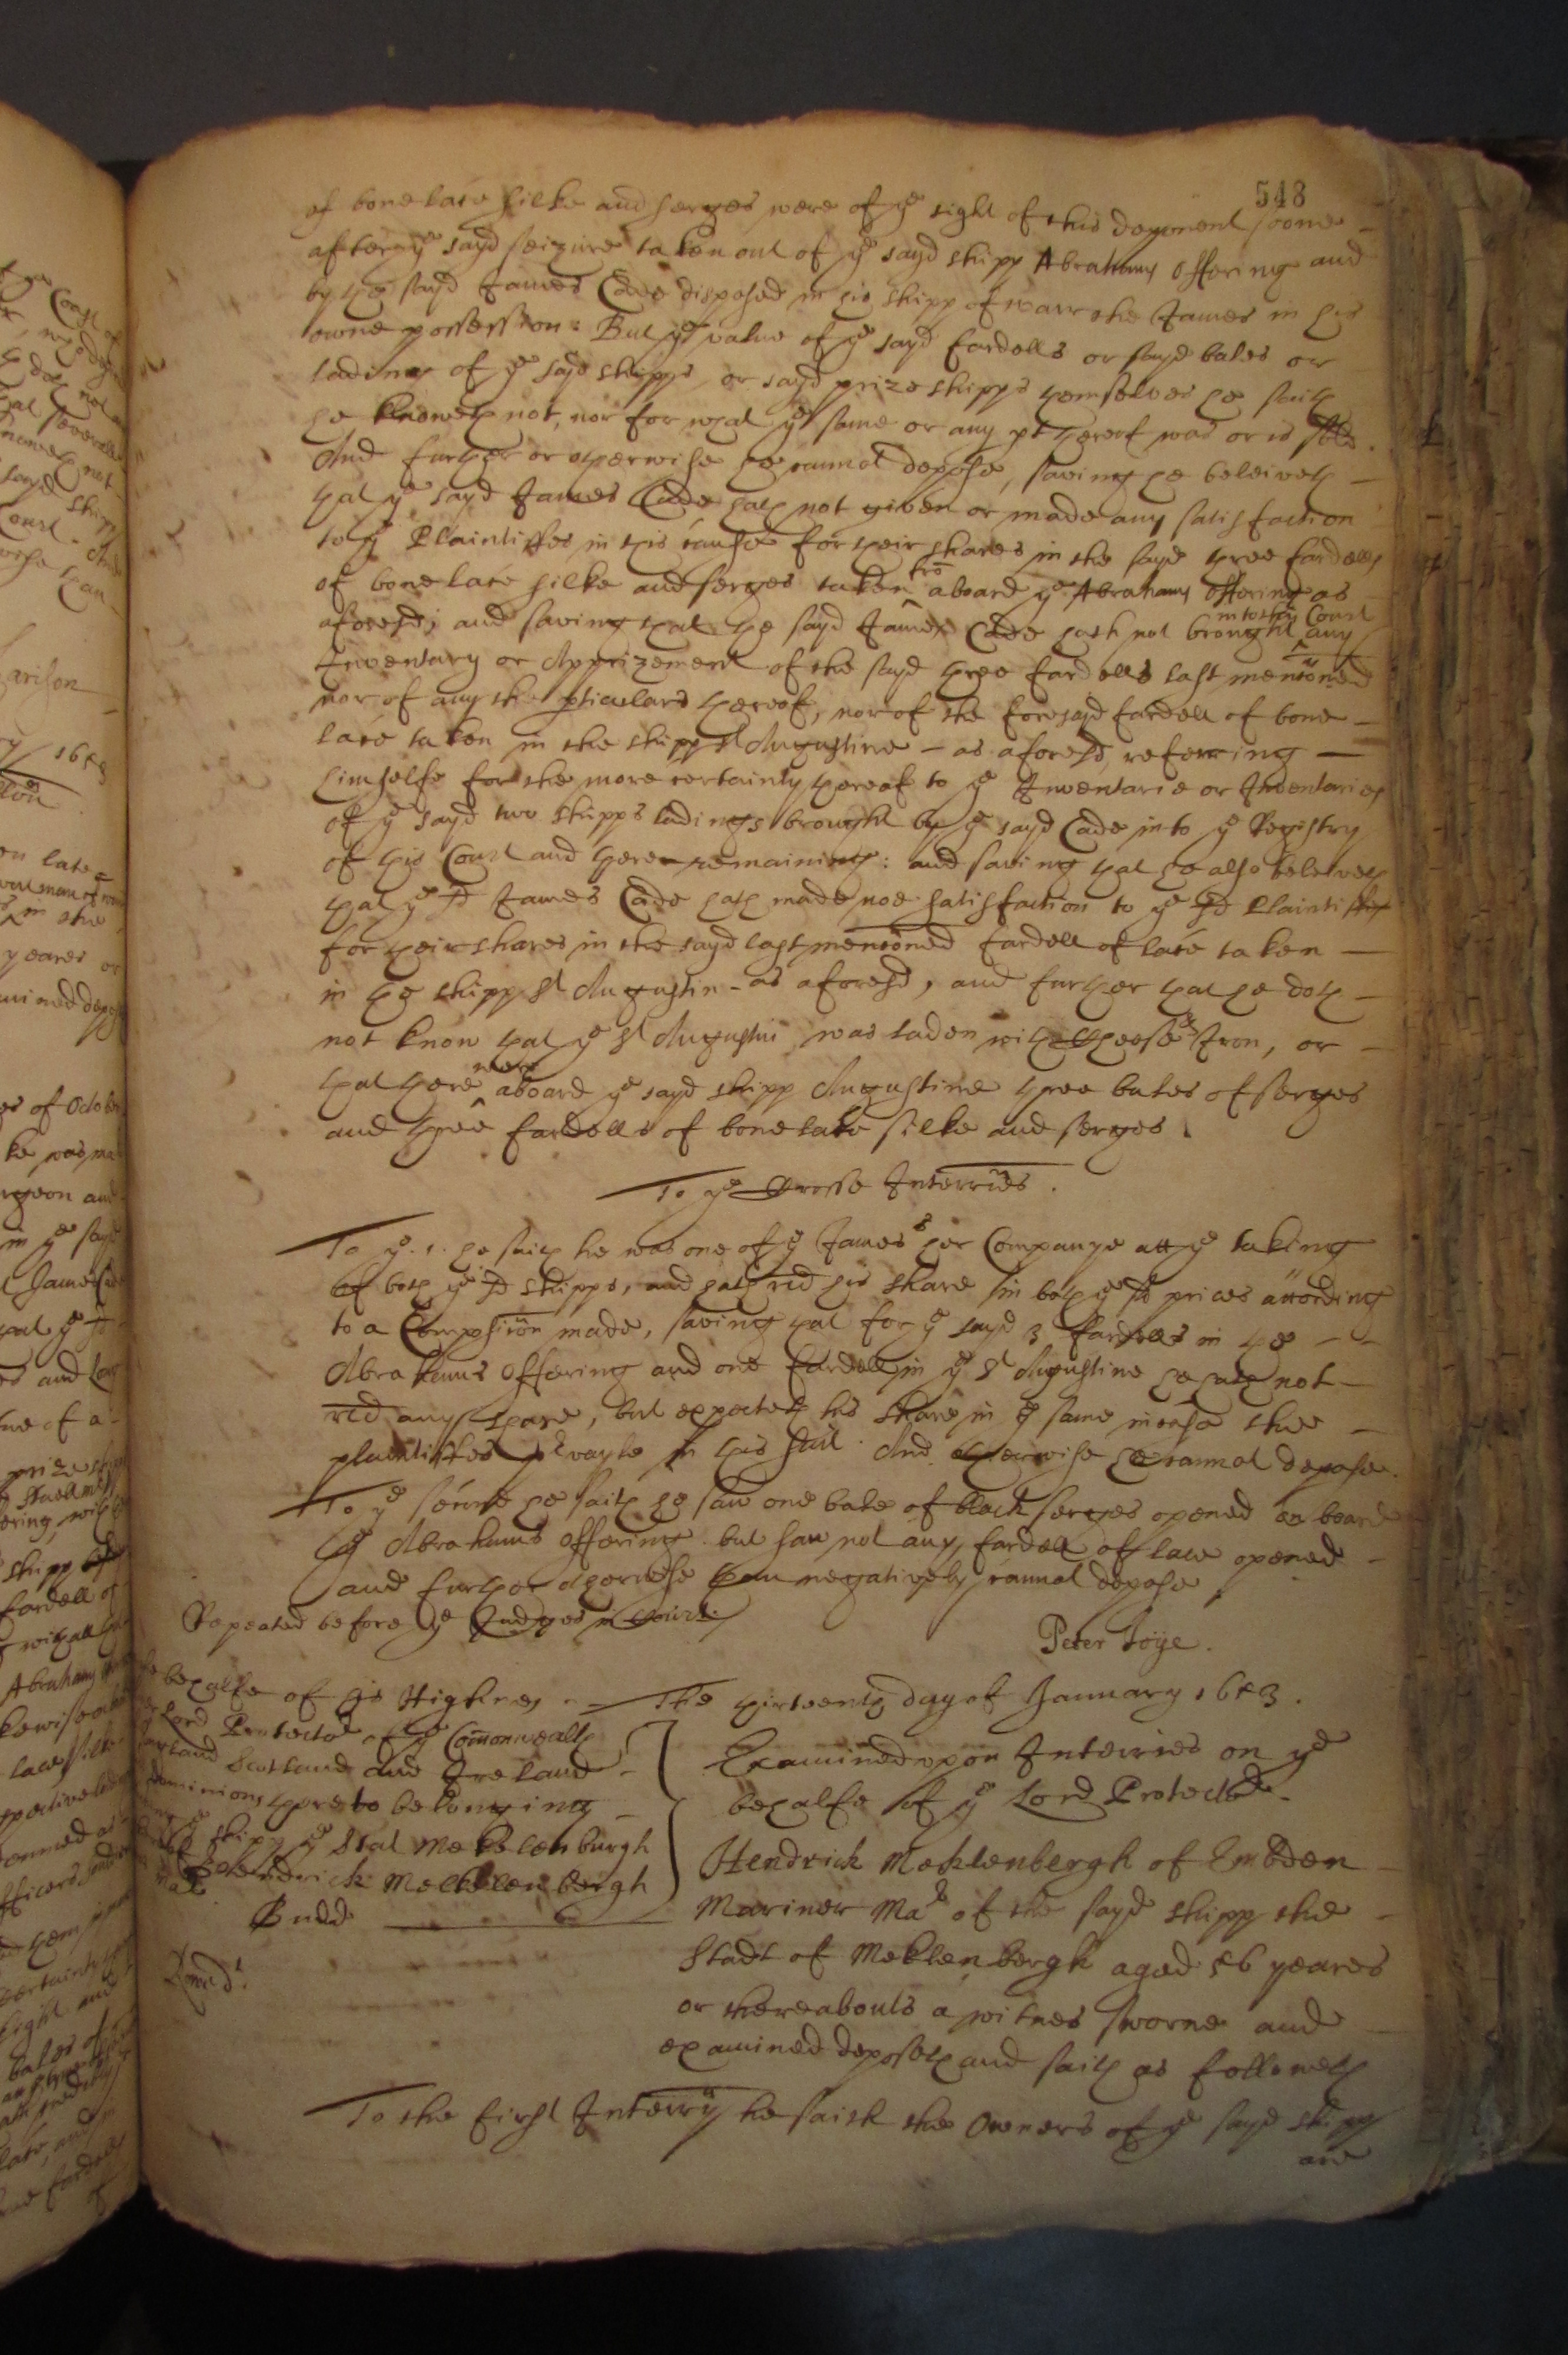 548
of bone lace silke and serges were of the sight of this deponent soone
after ye sayd seizure taken out of ye sayd shipp Abrahams Offering and
by the sayd James Cade disposed in his shipp of warr the James in his
owne possession: But ye value of ye sayd fardells or sayd bales or
lading of ye sayd shipps, or sayd prize shipps themselves he saith
he knoweth not, nor for what ye same or any pt thereof was or is sold.
And further or otherwise he cannot depose, saving he beleiveth
that ye sayd James Cade hath not given or made any satisfaction
to ye Plaintiffes in this cause for their shares in the sayd three fardells
of bone lace silke and serges taken fro aboard ye Abrahams Offering as
aforesd; and saving that the sayd James Cade hath not brought into this Court any
Inventary or Apprizement of the sayd three fardells last mentioned
nor of any the pticulars thereof, nor of the foresayd fardell of bone
lace taken in the shipp St Augustine as aforesd, referring
himselfe for the more certainty thereof to ye Inventarie or Inventaries
of ye sayd two shipps ladings brought by ye sayd Cade into ye Registry
of this Court and there remaining: and saving that he also beleiveth
that ye sd James Cade hath made noe satisfaction to ye sd Plaintiffes
for their shares in the sayd last mentioned fardell of lace taken
in the shipp St Augustin as aforesd, and further that he doth
not know that ye St Augustin was laden with Iron, or
that there were aboard ye sayd shipp Augustine three bales of serges
and three fardells of bone lace silke and serges.
To ye Crosse Interries.
To ye .1. he saith he was one of ye James her Companye att ye taking
of both ye sd shipps, and hath red his share in both ye sd prices according
to a Composition made, saving that for ye sayd 3 fardells in the
Abrahams Offering and one fardell in ye St Augustine he hath not
red any share, but expecteth his share in ye same in case the
plaintiffes prvayle in this suit. And otherwise he cannot depose.
To ye second he saith he saw one bale of black serges opened on board
ye Abrahams Offering but saw not any fardell of lace opened
and further otherwise than negatively cannot depose.
Repeated before ye Judges in Court.
Peter Joye.
behalfe of his Highnes
Lord Protector of ye Comonwealth
Scotland and Ireland
dominions thereto belonging
ye shipp ye Stat Mekelenburgh
Hendrick Mekelenbergh
Mar
Budd
The thirteenth day of January 1653.
Examined upon Interries on ye
behalfe of ye Lord Protector.
Hendrick Meklenbergh of Embden
Mariner Mar of the sayd shipp the
Stadt of Meklenbergh aged 56 yeares
or thereabouts a witnes sworne and
examined deposeth and saith as followeth
To the first Interry he saith the Owners of ye sayd shipp
are